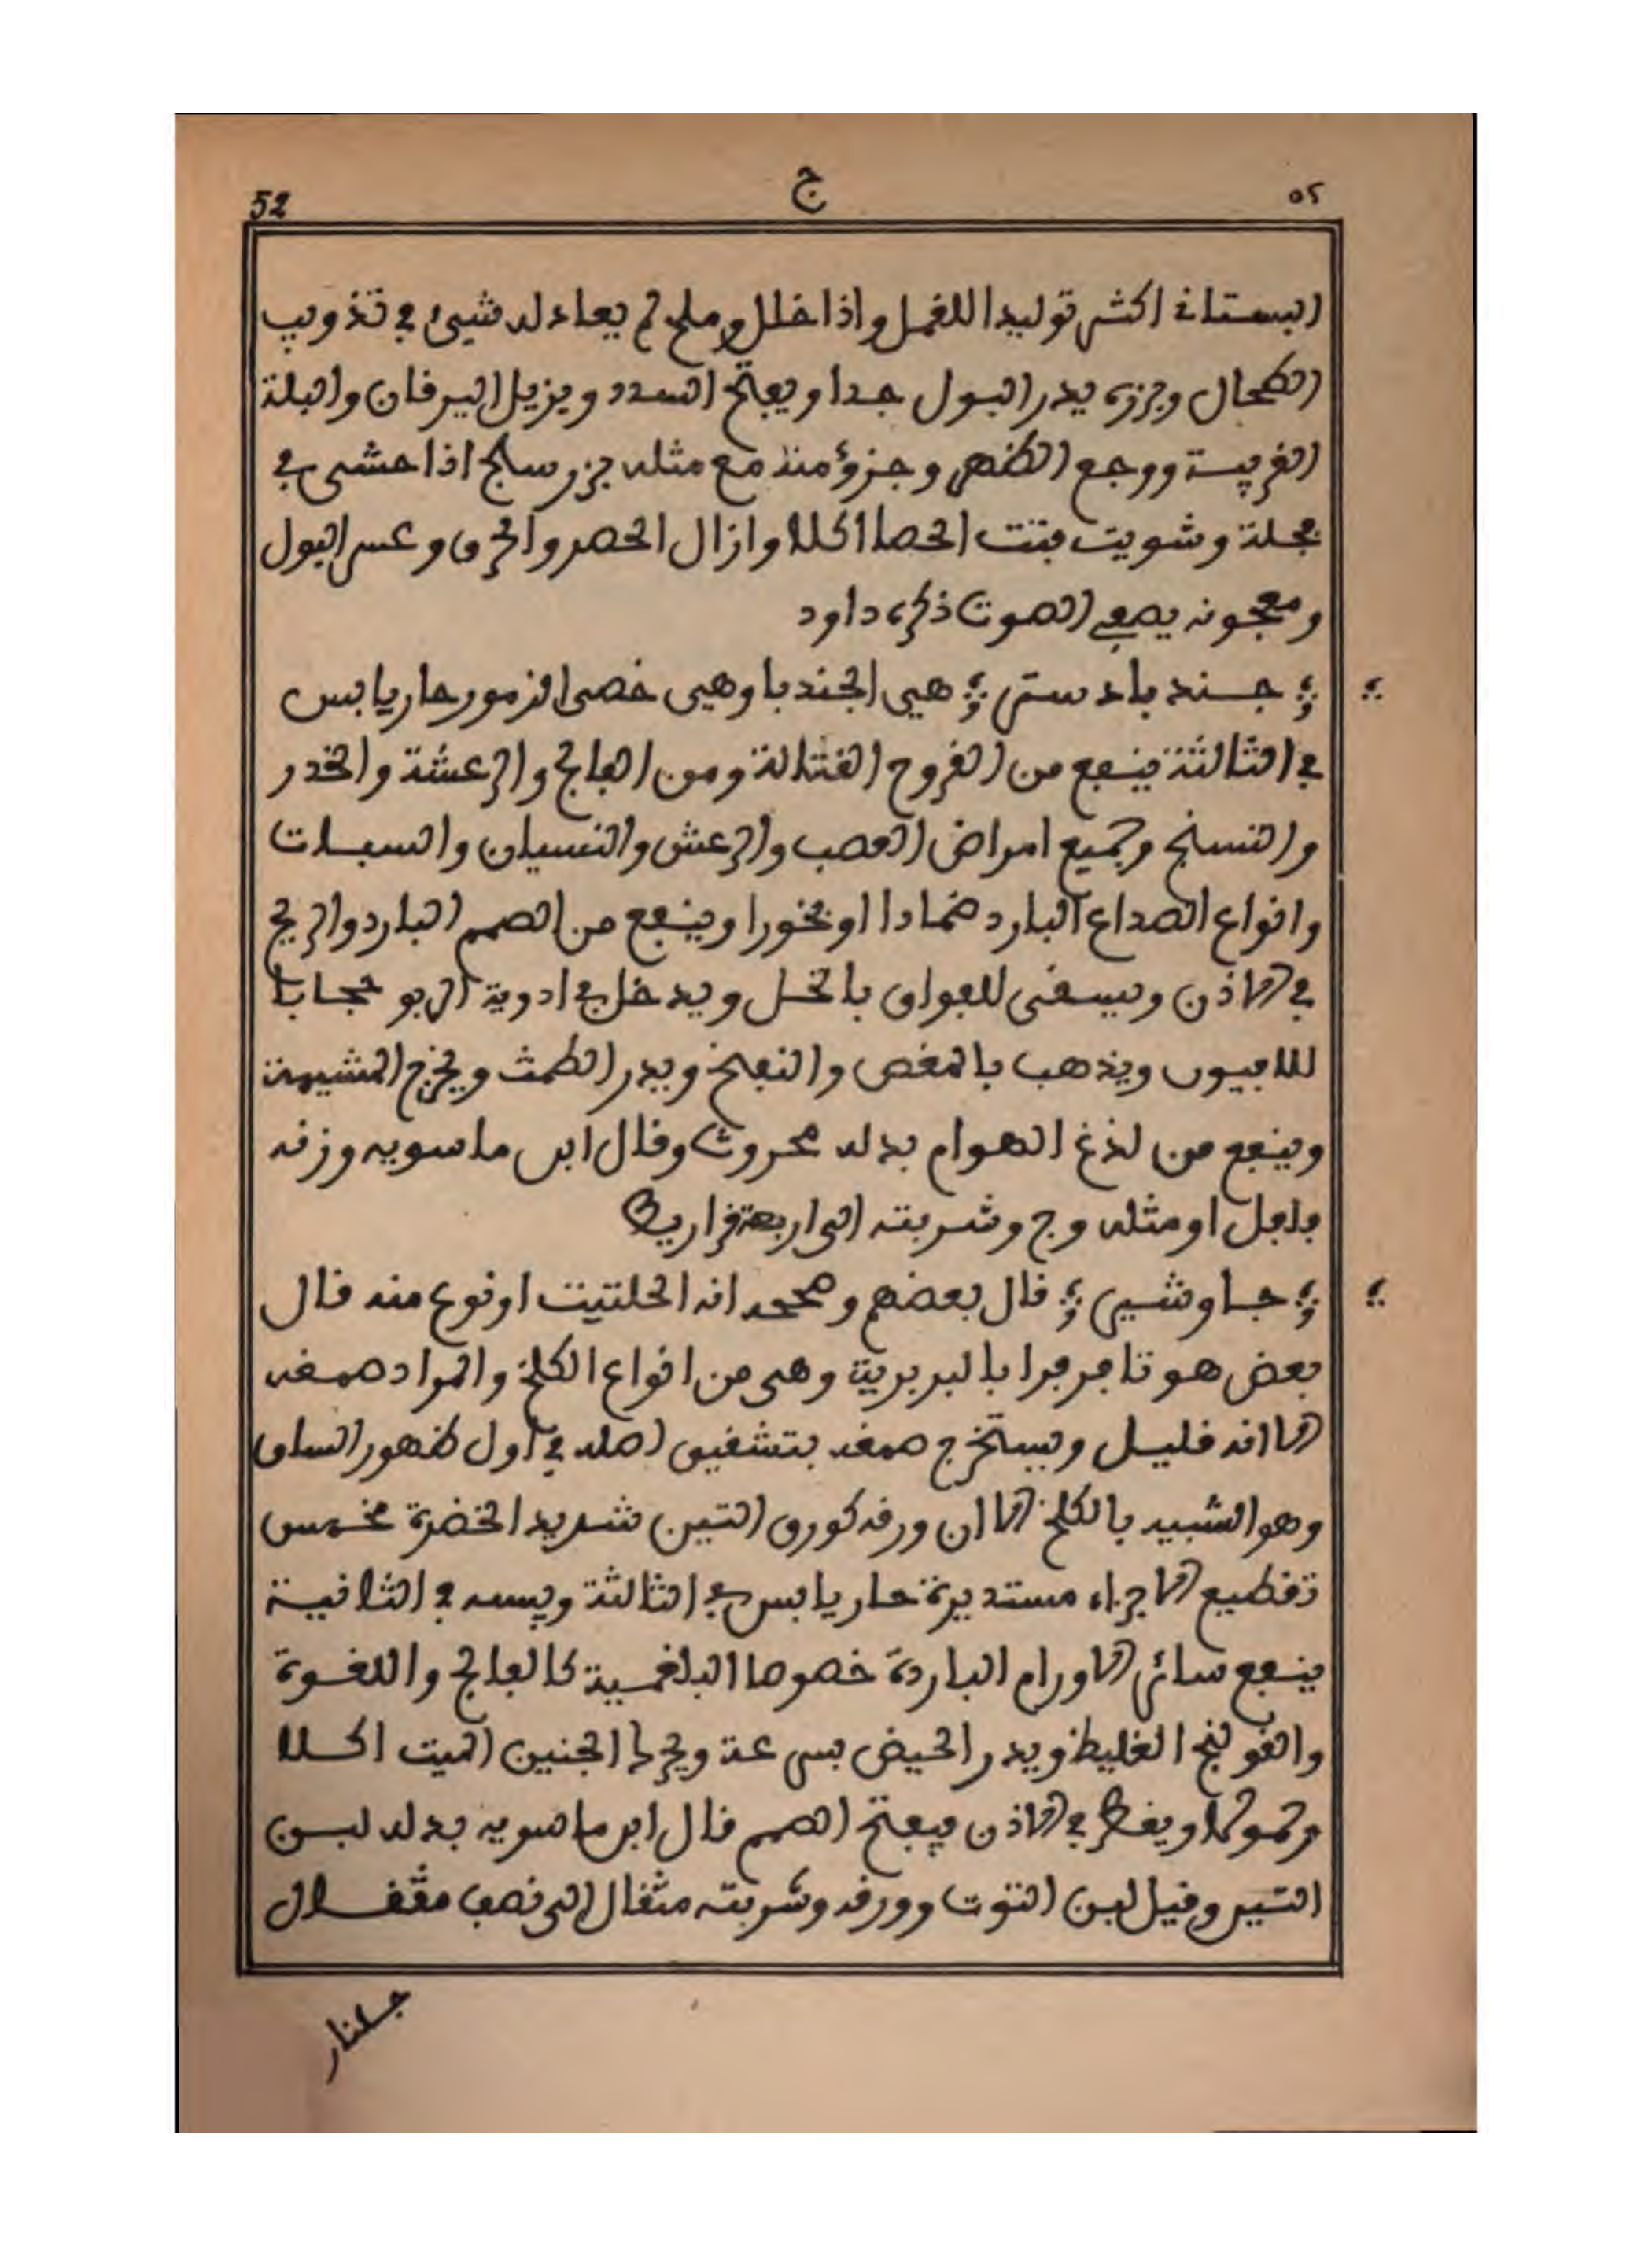 52 ج ٥٢
البستاني اكثر توليدا للقمل واذا خلل وملح لم يعادله شيئ في تذويب
الطحال وبزره يدر البول جدا ويفتح السدد ويزيل اليرقان والبلة
الغريبة ووجع الظهر وجزؤ منه مع مثله بزر سلجم اذا حشى في
فجلة وشويت فتت الحصا اكلا وازال الحصر والحرق وعسر البول
ومعجونه يصفي الصوت ذكره داود
؛ جند بادستر ؛ هيى الجندبا وهيى خصى القزمور حار يابس
في الثالثة ينفع من القروح القتالة ومن الفالج والرعشة والخدر
والتسنج وجميع امراض العصب والرعش والنسيان والسبات
وانواع الصداع البارد ضمادا او بخورا وينفع من الصمم البارد والريح
في الاذن ويسقى للفواق بالخل ويدخل في ادوية الربو
للافيون ويذهب بالمغص والنفخ ويدر الطمث ويخرج المشيمة
وينفع من لذغ الهوام بدله محروث وقال ابن ماسويه وزنه
فلفل او مثله وج وشربته الى اربعة قراريط
؛ جاوشير ؛ قال بعضهم وصححه انه الحلتيت او نوع منه قال
بعض هو تافرفرا بالبربرية وهى من انواع الكلخ والمراد صمغه
الا انه قليل ويستخرج صمغه بتشقيق اصله في اول ظهور الساق
وهو الشبيه بالكلخ الا ان ورقه كورق التين شديد الخضرة مخمس
تقطيع الاجزاء مستديرة حار يابس في الثالثة ويبسه في الثانية
ينفع سائر الاورام الباردة خصوصا البلغمية كالفالج واللقوة
والقولنج الغليظ ويدر الحيض بسرعة ويخرج الجنين الميت اكلا
وحمولا ويقطر في الاذن فيفتح الصمم قال ابن ماسويه بدله لبن
التين وقيل لبن التوت وورقه وشربته مثقال الى نصف مثقال
جلنار